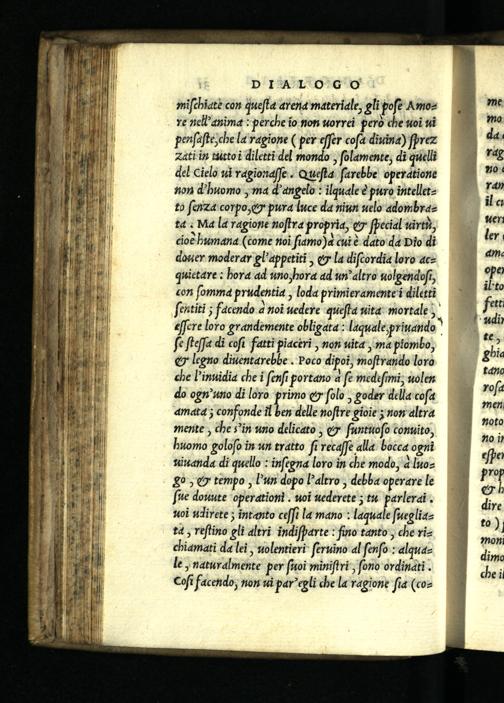 DIALOGO
miſchiate con queſta arena materiale, gli poſe Amo=
re nell'anima : perche io non uorrei però che uoi ui
penſaſte, che la ragione ( per eſſer coſa diuina) ſprez
zati in tutto i diletti del mondo , ſolamente, di quelli
del Cielo ui ragionaſſe . Queſta ſarebbe operatione
non d'huomo , ma d'angelo : ilquale è puro intellet=
to ſenza corpo, & pura luce da niun uelo adombra=
ta . Ma la ragione noſtra propria, & ſpecial uirtù,
cioè humana (come noi ſiamo) à cui è dato da Dio di
douer moderar gl'appetiti , & la diſcordia loro ac=
quietare : hora ad uno, hora ad un'altro uolgendoſi,
con ſomma prudentia , loda primieramente i diletti
ſentiti ; facendo à noi uedere queſta uita mortale ,
eſſere loro grandemente obligata : laquale, priuando
ſe ſteſſa di coſi fatti piaceri , non uita , ma piombo,
& legno diuentarebbe . Poco dipoi, moſtrando loro
che l'inuidia che i ſenſi portano à ſe medeſimi, uolen
do ogn'uno di loro primo & ſolo , goder della coſa
amata ; confonde il ben delle noſtre gioie ; non altra
mente , che s'in uno delicato , & ſuntuoſo conuito,
huomo goloſo in un tratto ſi recaſſe alla bocca ogni
uiuanda di quello : inſegna loro in che modo, à luo=
go , & tempo , l'un dopo l'altro , debba operare le
ſue douute operationi . uoi uederete ; tu parlerai .
uoi udirete ; intanto ceſſi la mano : laquale ſueglia=
ta , reſtino gli altri indiſparte : fino tanto , che ri=
chiamati da lei , uolentieri ſeruino al ſenſo : alqua=
le , naturalmente per ſuoi miniſtri , ſono ordinati .
Coſi facendo, non ui par'egli che la ragione ſia (co=